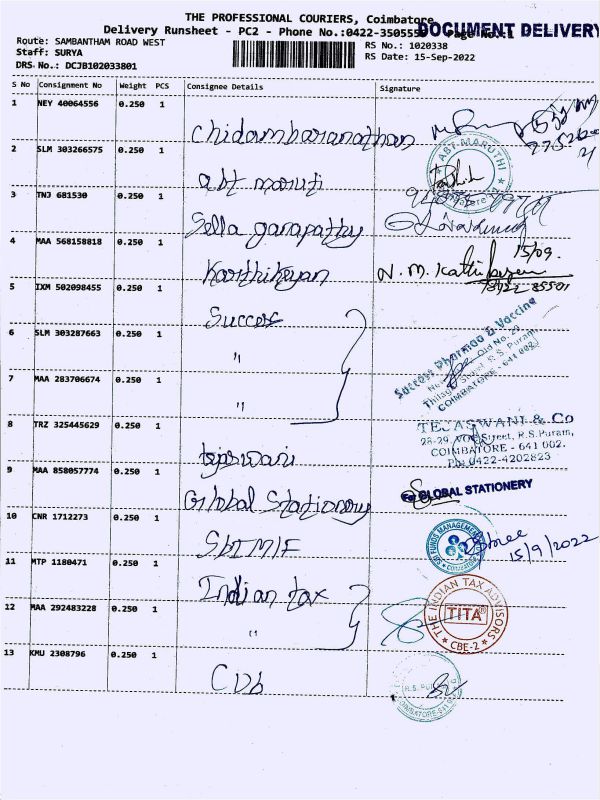 THE PROFESSIONAL COURIERS, Coimbatore
DOCUMENT DELIVERY
Delivery Runsheet - PC2 - Phone No.:0422-350555 Page No.:1
Route: SAMBANTHAM ROAD WEST
RS No.: 1020338
Staff: SURYA
RS Date: 15-Sep-2022
DRS No.: DCJB102033801
S No Consignment No Weight PCS Consignee Details Signature
1 NEY 40064556 0.250 1
Chidambaranathan
2 SLM 303266575 0.250 1
ABT MARUTHI
abt maruti
3 TNJ 681530 0.250 1
Sella ganapathy
4 MAA 568158818 0.250 1
15/09.
Karthikeyan N. M. Karthikeyan
5 IXM 502098455 0.250 1
Success
6 SLM 303287663 0.250 1
"
Success Pharmaa & Vaccine
Old No. 29
R. S. Puram
COIMBATORE - 641 002.
7 MAA 283706674 0.250 1
"
8 TRZ 325445629 0.250 1
TEJASWANI & Co
28-29, Street, R.S.Puram,
COIMBATORE - 641 002.
PH:0422-4202823
tejaswani
9 MAA 858057774 0.250 1
For GLOBAL STATIONERY
Global Stationery
10 CNR 1712273 0.250 1
SBI FUNDS MANAGEMENT
COIMBATORE
SBIMIF
15/9/2022
11 MTP 1180471 0.250 1
Indian tax
THE INDIAN TAX ADVISORS
TITA
CBE-2
12 MAA 292483228 0.250 1
"
13 KMU 2308796 0.250 1
CDb
R.S. PURAM
COIMBATORE